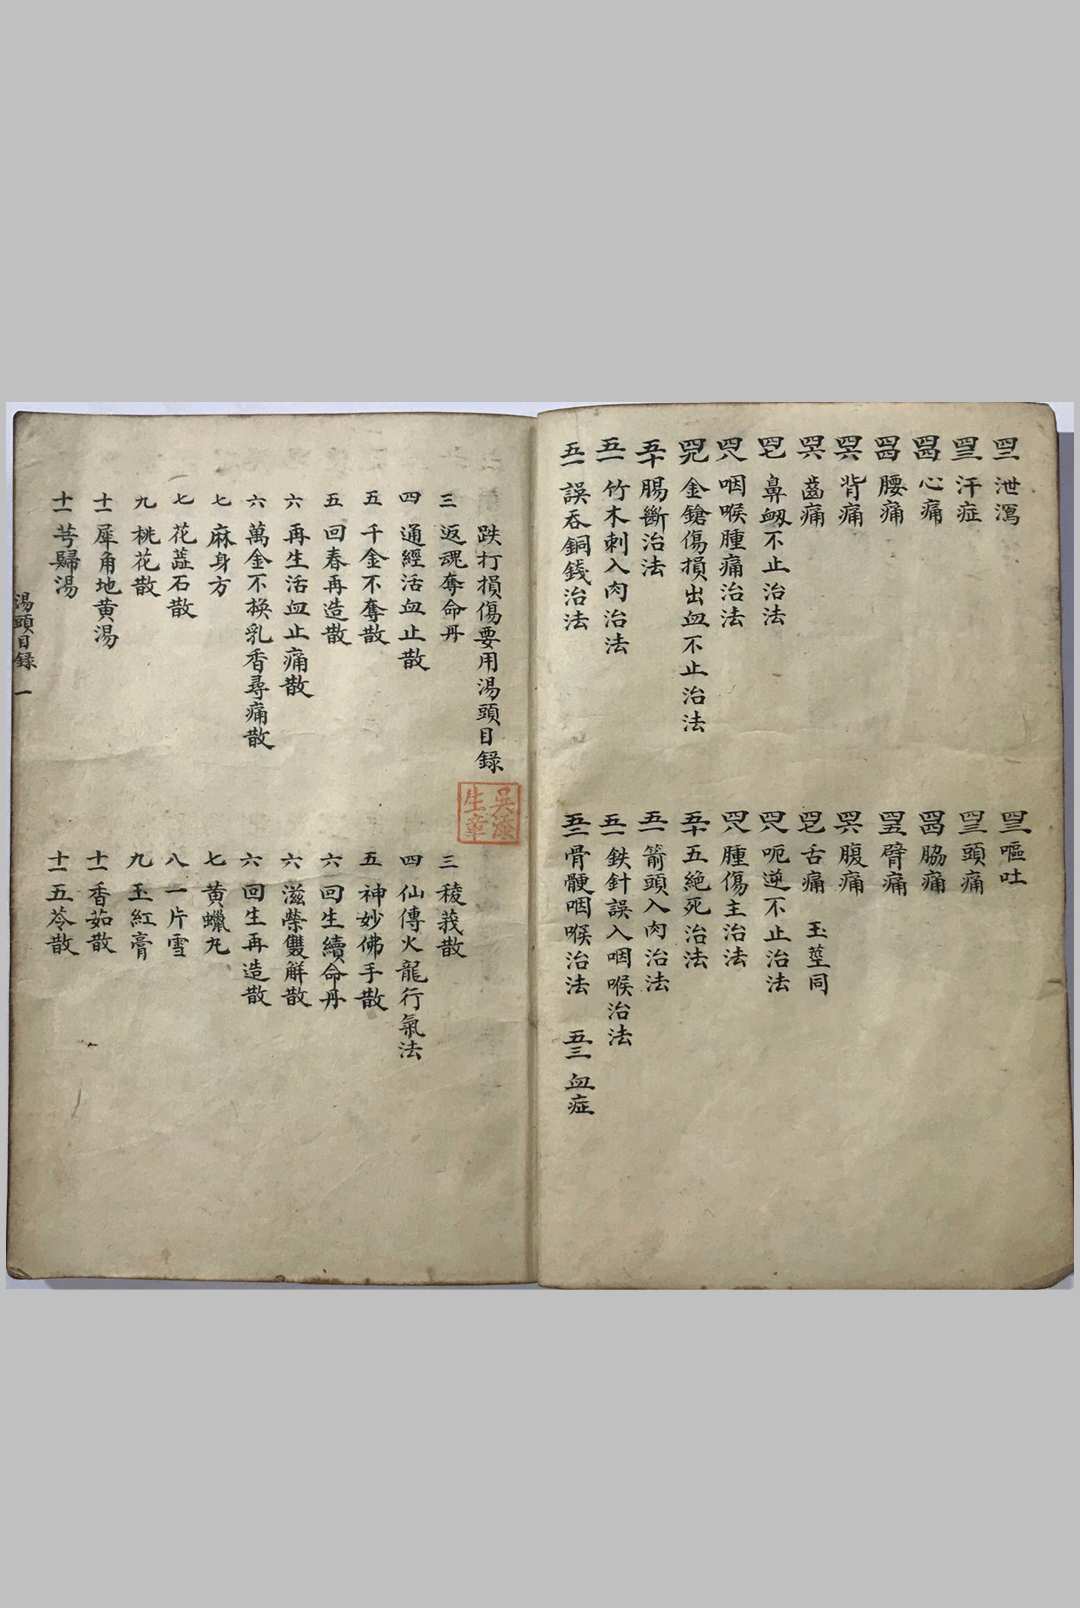 四三 泄瀉
四三 嘔吐
四三 汗症
四三 頭痛
四四 心痛
四四 脇痛
四四 腰痛
四五 臂痛
四六 背痛
四六 腹痛
四六 齒痛
四七 舌痛 玉莖同
四七 鼻衂不止治法
四八 呃逆不止治法
四八 咽喉腫痛治法
四八 腫傷主治法
四九 金鎗傷損出血不止治法
五十 五絕死治法
五十 腸斷治法
五一 箭頭入肉治法
五一 竹木刺入肉治法
五一 鉄針誤入咽喉治法
五一 誤吞銅錢治法
五二 骨骾咽喉治法 五三 血症
跌打損傷要用湯頭目錄
吳
生章
三 返魂奪命丹
三 稜莪散
四 通經活血止散
四 仙傳火龍行氣法
五 千金不奪散
五 神妙佛手散
五 回春再造散
六 回生續命丹
六 再生活血止痛散
六 滋榮雙解散
六 萬金不換乳香尋痛散
六 回生再造散
七 麻身方
七 黃蠟丸
七 花蕋石散
八 一片雪
九 桃花散
九 玉紅膏
十一 犀角地黄湯
十一 香茹散
十一 芎歸湯
十一 五苓散
湯頭目録 一